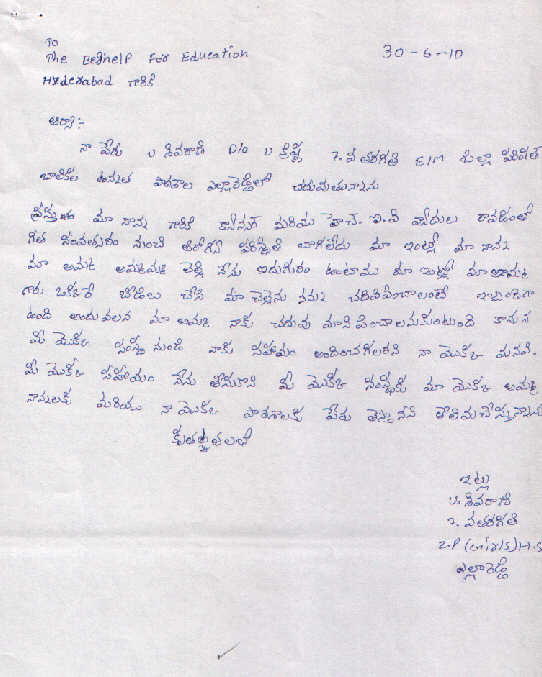 To 30-6-10
The Bejhelp For Education
Hyderabad గారికి
ఆర్యా:-
నా పేరు U శివరాణి D/o U క్రిష్ణ 7.వ తరగతి E/M జిల్లా పరిషత్
బాలికల ఉన్నత పాఠశాల ఎల్లారెడ్డిలో చదువుతున్నాను
ప్రస్తుతం మా నాన్న గారికి క్యాన్సర్ మరియు హెచ్.ఐ.వి వ్యాధులు రావడంలో
గత సంవత్సరం నుంచి ఆరోగ్య పరిస్థితి బాగలేదు మా ఇంట్లో మా నాన్న
మా అమ్మ అమ్మమ్మ చెల్లి నేను ఐదుగురం ఉంటాము మా ఇంట్లో మా అమ్మ
గారు ఒక్కరే బీడీలు చేసి మా చెల్లెను నన్ను చదివించాలంటే ఇబ్బందిగా
ఉంది అందువలన మా అమ్మ నాకు చదువు మానిపించాలనుకుంటుంది కావున
మీ యొక్క సంస్థ నుండి నాకు సహాయం అందించగలరని నా యొక్క మనవి.
మీ యొక్క సహాయం నేను తీసుకొని మీ యొక్క సంస్థకు మా యొక్క అమ్మ
నాన్నలకు మరియు నా యొక్క పాఠశాలకు పేరు తెస్తానని తెలియచేస్తున్నాను
కృతజ్ఞతలతో
ఇట్లు
U. శివరాణి
7. వ తరగతి
Z.P (Girls) H.S
ఎల్లారెడ్డి